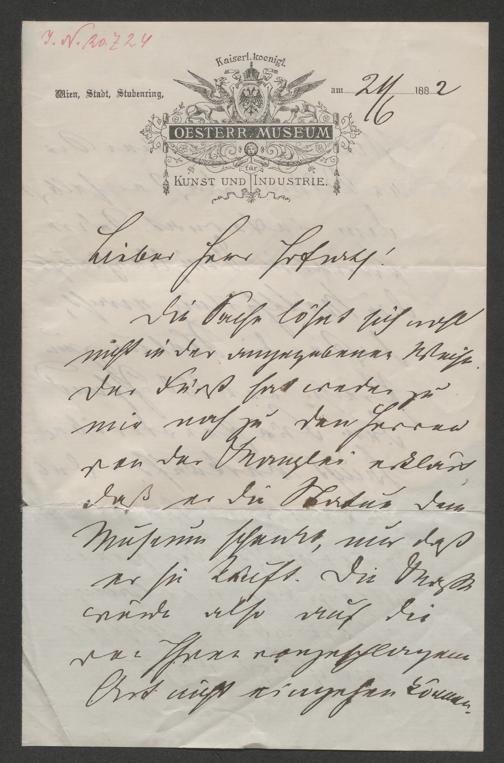 J. N. 20724
Kaiserl. koenigl.
Wien, Stadt, Stubenring, am 24/6 1882
OESTERR. MUSEUM
für
KUNST UND INDUSTRIE.
Lieber Herr Hofrath!
Die Sache löst sich wohl
nicht in der angegebenen Weise.
Der Fürst hat weder zu
mir noch zu den Herren
von der Kanzlei erklärt
daß er die Statue dem
Museum schenkt, nur daß
er sie kauft. Die
würde also auf die
von Ihnen vorgeschlagene
Art nicht eingehen können.